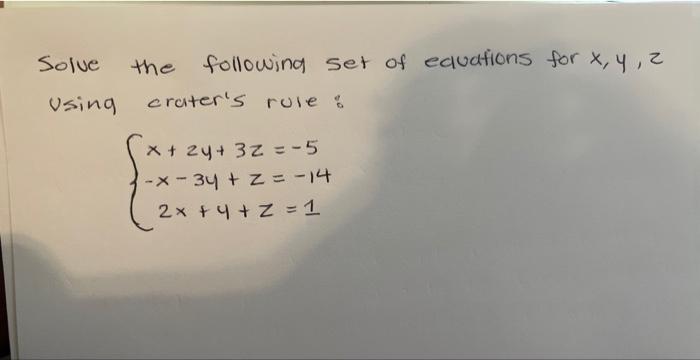 Solve the following set of equations for x, y, z
Using crater's rule :
x + 2y + 3z = -5
-x - 3y + z = -14
2x + y + z = 1